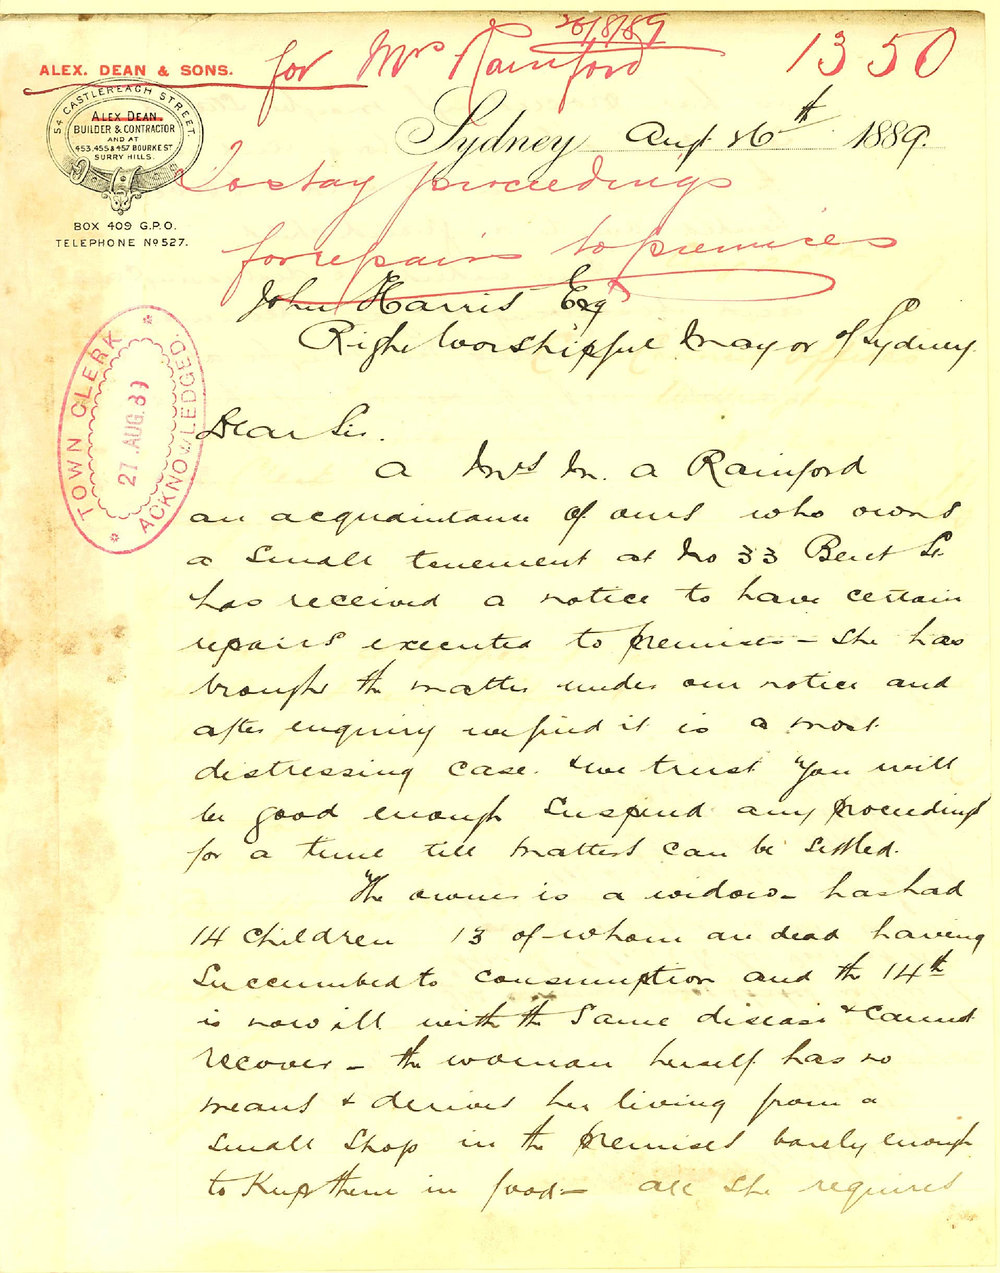 26/8/89
for Mrs Rainford
1350
ALEX. DEAN & SONS.
54 CASTLEREAGH STREET.
ALEX DEAN.
BUILDER & CONTRACTOR
AND AT
453.455 & 457 BOURKE ST
SURRY HILLS.
BOX 409 G.P.O.
TELEPHONE No 527.
Sydney Augt 26th 1889.
To stay proceedings
for repairs to premices
John Harris Esq
Right Worshipful Mayor of Sydney
TOWN CLERK
27 AUG. 89
ACKNOWLEDGED
Dear Sir.
A Mrs M. A Rainford
an acquaintance of ours who owns
a small tenement at No 33 Bent St
has received a notice to have certain
repairs executed to premises – she has
brought the matter under our notice and
after enquiry we find it is a most
distressing case. & we trust you will
be good enough suspend any proceedings
for a time till matters can be settled.
The owner is a widow – has had
14 children 13 of whom are dead having
succumbed to consumption and the 14th
is now ill with the same disease & cannot
recover – the woman herself has no
means & derives her living from a
small shop in the premises barely enough
to keep them in food – all she requires